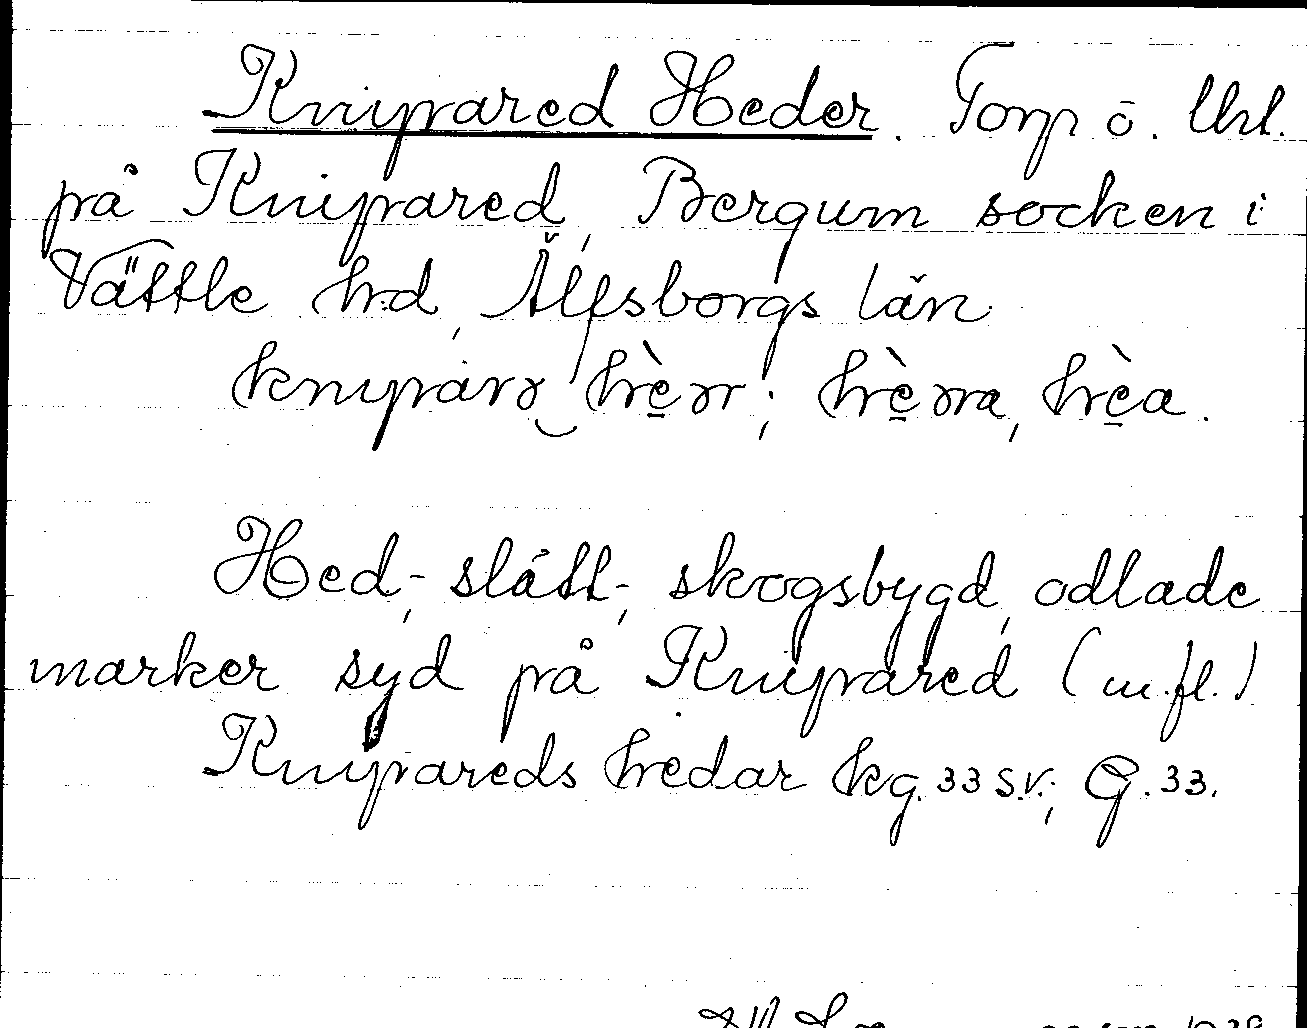 Knipared Heder. Torp o. Uhl.
på Knipared, Bergum socken i
Vättle hd, Älfsborgs län.
knypàrr hèrr; hèrra, hèa.
Hed-, slått-, skogsbygd, odlade
marker syd på Knipared (m.fl.)
Knipareds hedar kg. 33 s.v.; G. 33.